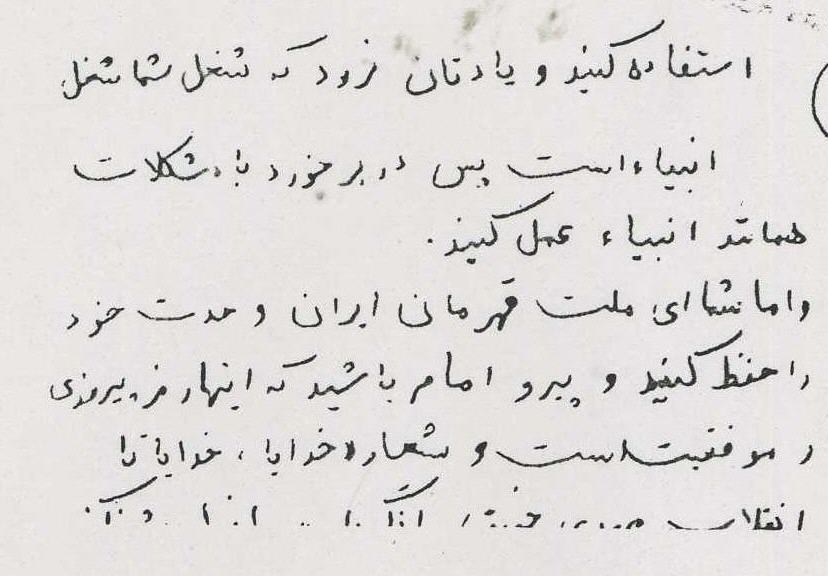 استفاده کنید و یادتان نرود که شغل شما شغل
انبیاء است پس در برخورد با مشکلات
همانند انبیاء عمل کنید.
و اما شما ای ملت قهرمان ایران وحدت خود
را حفظ کنید و پیرو امام باشید که اینها رمز پیروزی
و موفقیت است و شعار خدایا، خدایا تا
انقلاب